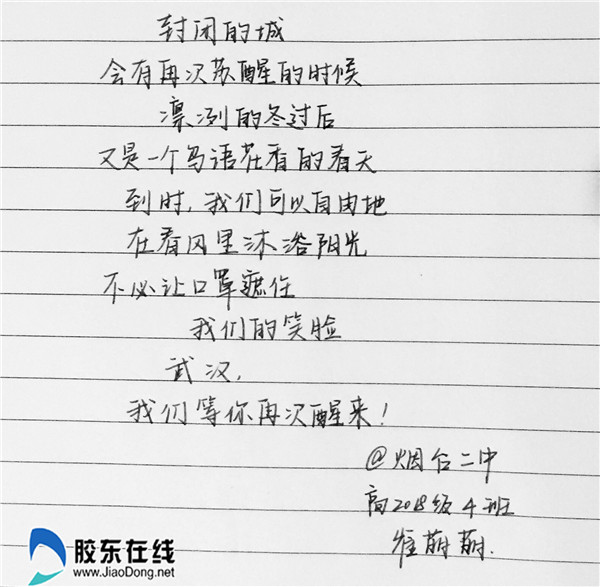 封闭的城
会有再次苏醒的时候
凛冽的冬过后
又是一个鸟语花香的春天
到时,我们可以自由地
在春风里沐浴阳光
不必让口罩遮住
我们的笑脸
武汉,
我们等你再次醒来!
@烟台二中
高2018级4班
胶东在线
www.JiaoDong.net